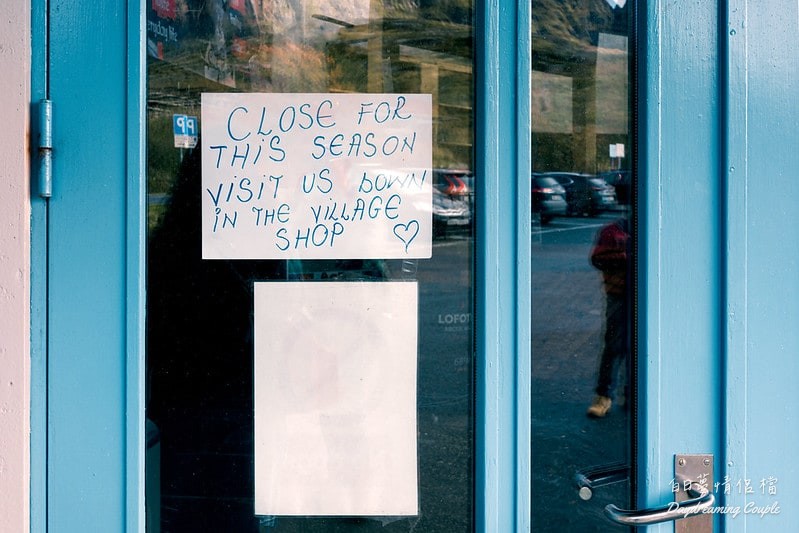 CLOSE FOR
THIS SEASON
VISIT US DOWN
IN THE VILLAGE
SHOP ♡
白日夢情侶檔
Daydreaming Couple